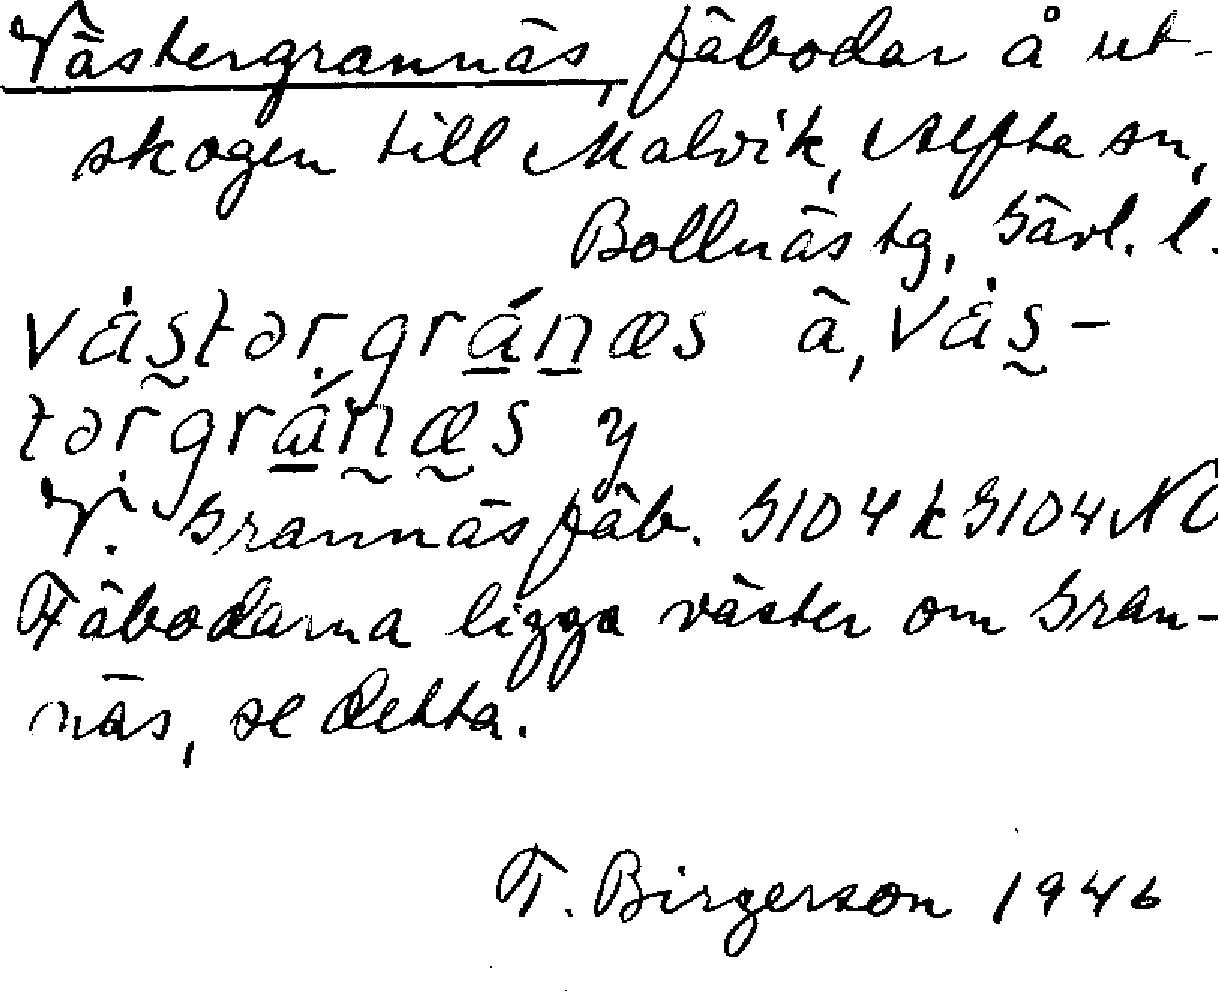 Västergrannäs, fäbodar å ut-
skogen till Malvik, Alfta sn,
Bollnäs tg, Gävl. l.
vȧstərgránæs ä, vȧs-
tərgránæs y
V. Grannäs fäb. G104k G104 NO
Fäbodarna ligga väster om Gran-
näs, se detta.
T. Birgerson 1946